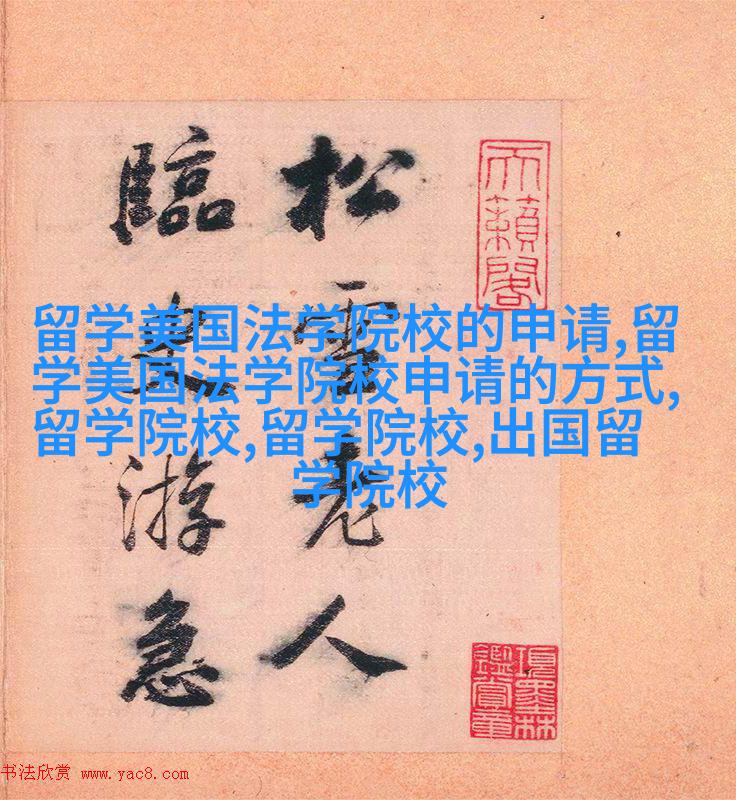 天籟閣
項墨林
鑑賞章
松雪老人
臨史游急
留学美国法学院校的申请,留
学美国法学院校申请的方式,
留学院校,留学院校,出国留
学院校
书法欣赏 www.yac8.com